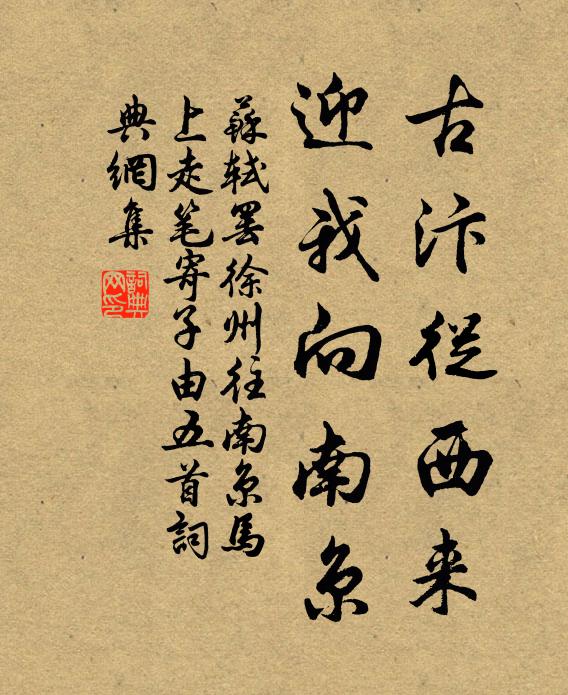 古汴從西来
迎我向南京
蘇軾罷徐州往南京馬
上走笔寄子由五首詞
典網集
詞典网印